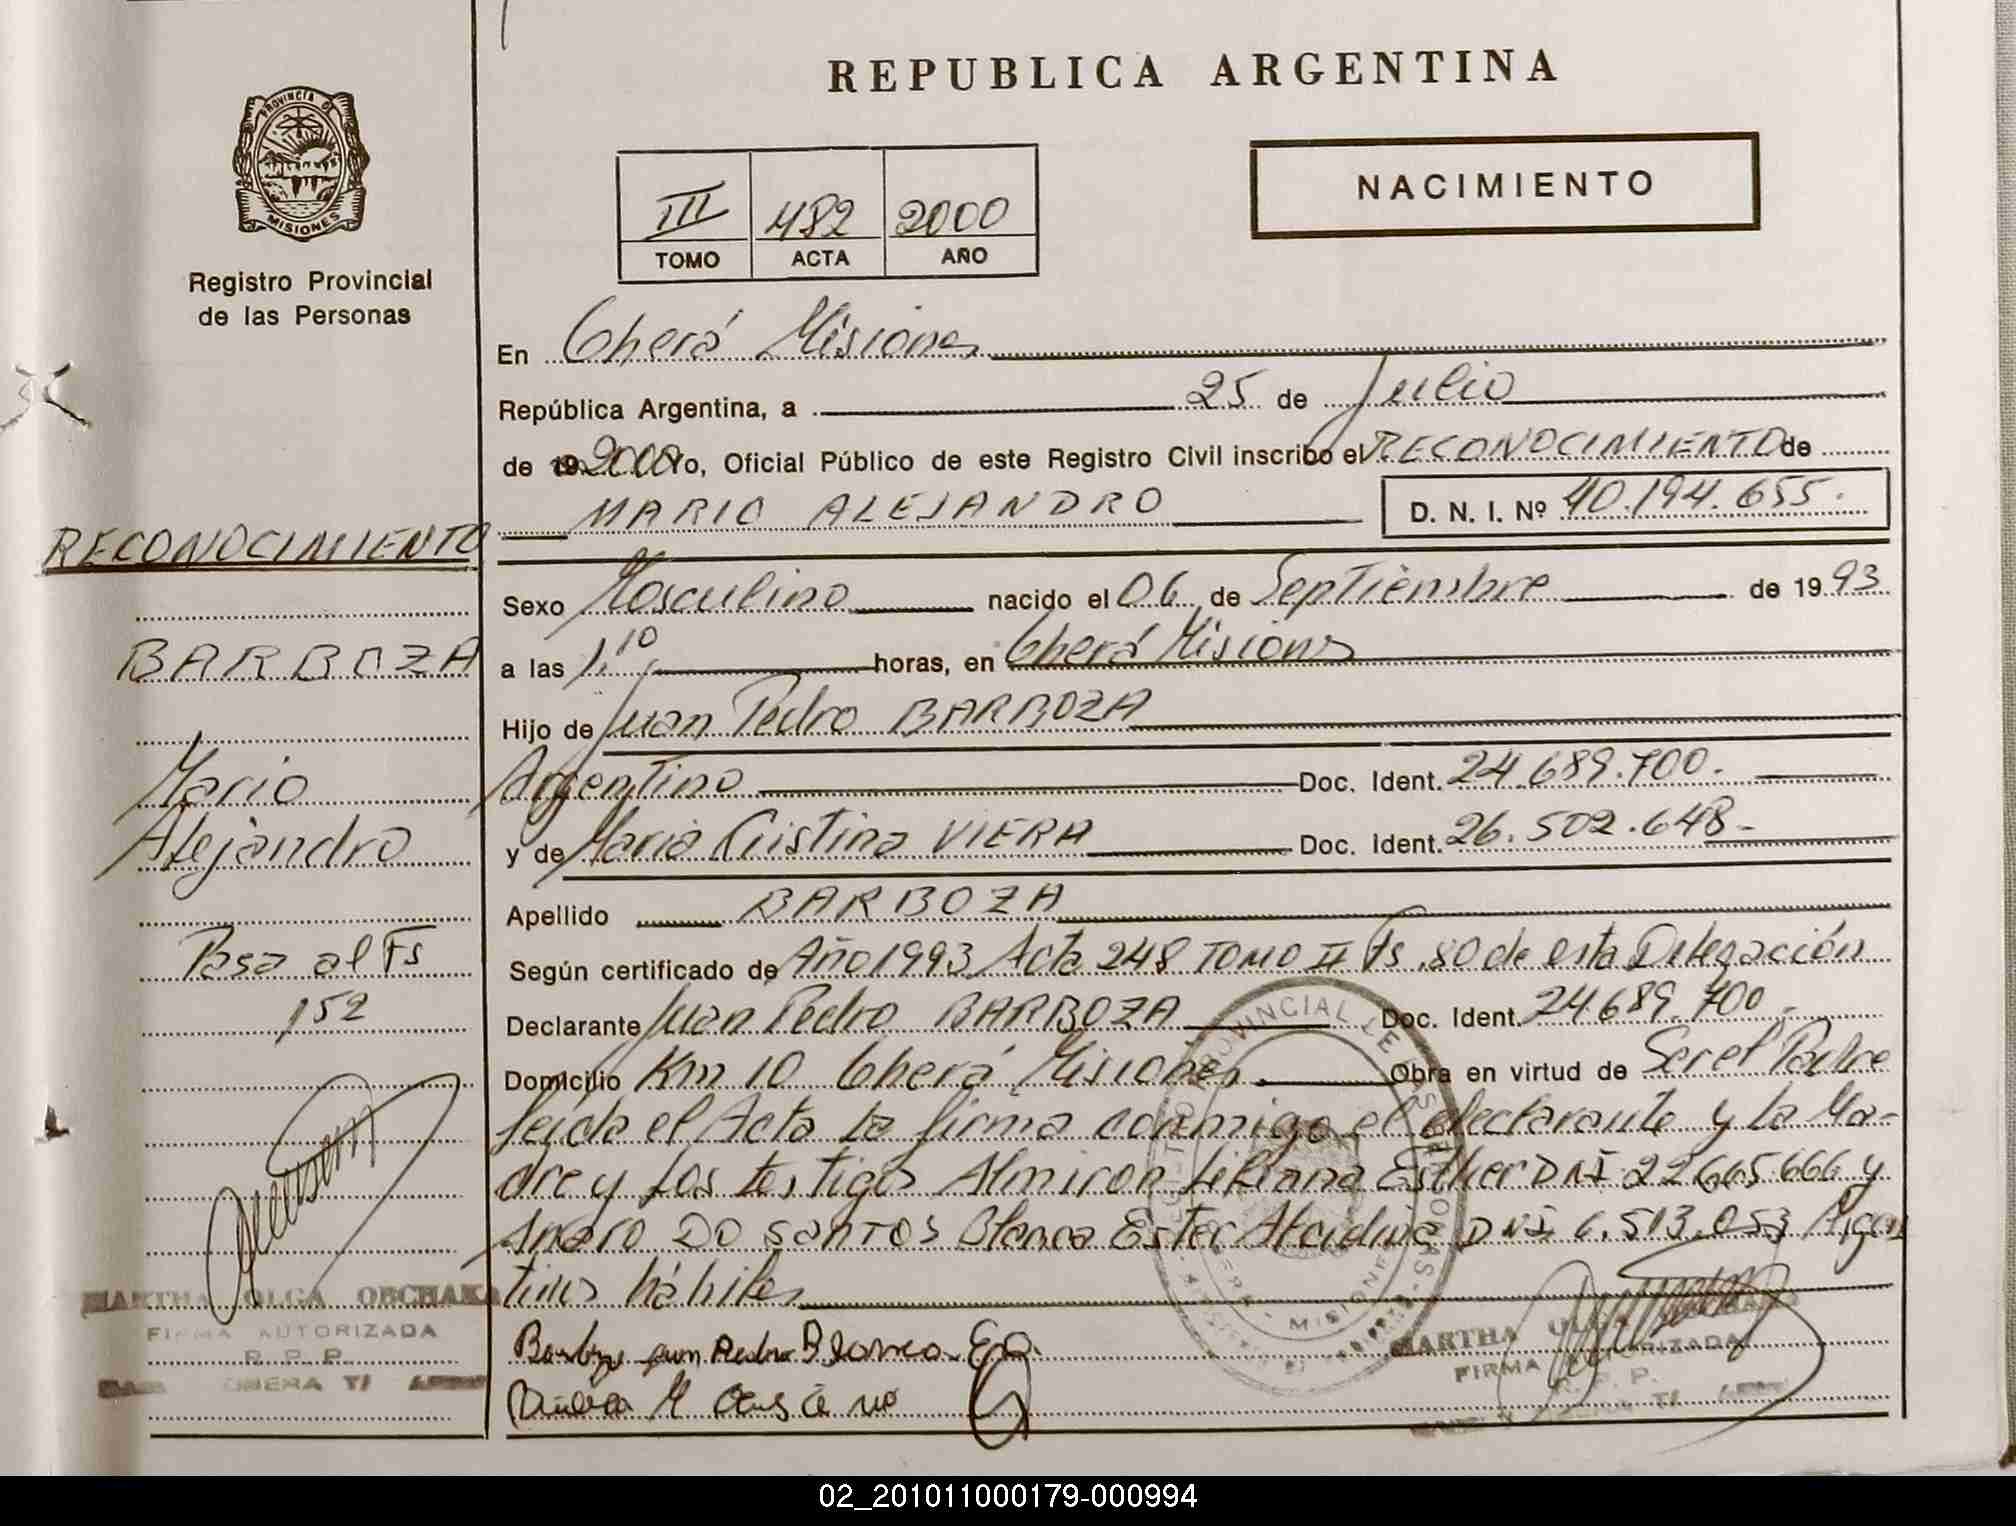 REPUBLICA ARGENTINA
PROVINCIA DE
MISIONES
Registro Provincial
de las Personas
NACIMIENTO
III 482 2000
TOMO ACTA AÑO
En Oberá Misiones
República Argentina, a 25 de Julio
de 2000 Yo, Oficial Público de este Registro Civil inscribo el RECONOCIMIENTO de
MARIO ALEJANDRO D. N. I. Nº 40.194.655.
Sexo Masculino nacido el 06 de Septiembre de 1993
a las 1,10 horas, en Oberá Misiones
Hijo de Juan Pedro BARBOZA
Argentino Doc. Ident. 24.689.700.
y de Maria Cristina VIERA Doc. Ident. 26.502.648-
Apellido BARBOZA
Según certificado de Año 1993 Acta 248 TOMO II Fs .80 de esta Delegación
Declarante Juan Pedro BARBOZA Doc. Ident. 24689.700.
Domicilio Km 10 Oberá Misiones Obra en virtud de Ser el Padre
Leída el Acta la firma conmigo el declarante y la Ma-
dre y Los testigos Almiron Liliana Esther DNI 22.665.666 y
DO SANTOS Blanca Ester DNI 6.513.053 Argen
tinos hábiles
Juan Pedro Blanca E.
RECONOCIMIENTO
BARBOZA
Mario
Alejandro
Pasa al Fs
152
MARTHA OLGA OBCHAKA
FIRMA AUTORIZADA
R. P. P.
OBERA
MARTHA
FIRMA AUTORIZADA
R. P. P.
PROVINCIAL DE LAS PERSONAS
MISIONES
02_201011000179-000994